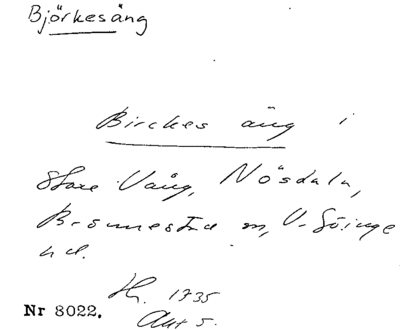 Björkesäng
Birckes äng i
Store Vång, Nösdala,
Brönnestad sn, V. Göinge
hd.
Nr 8022. H. 1735
Akt 5.